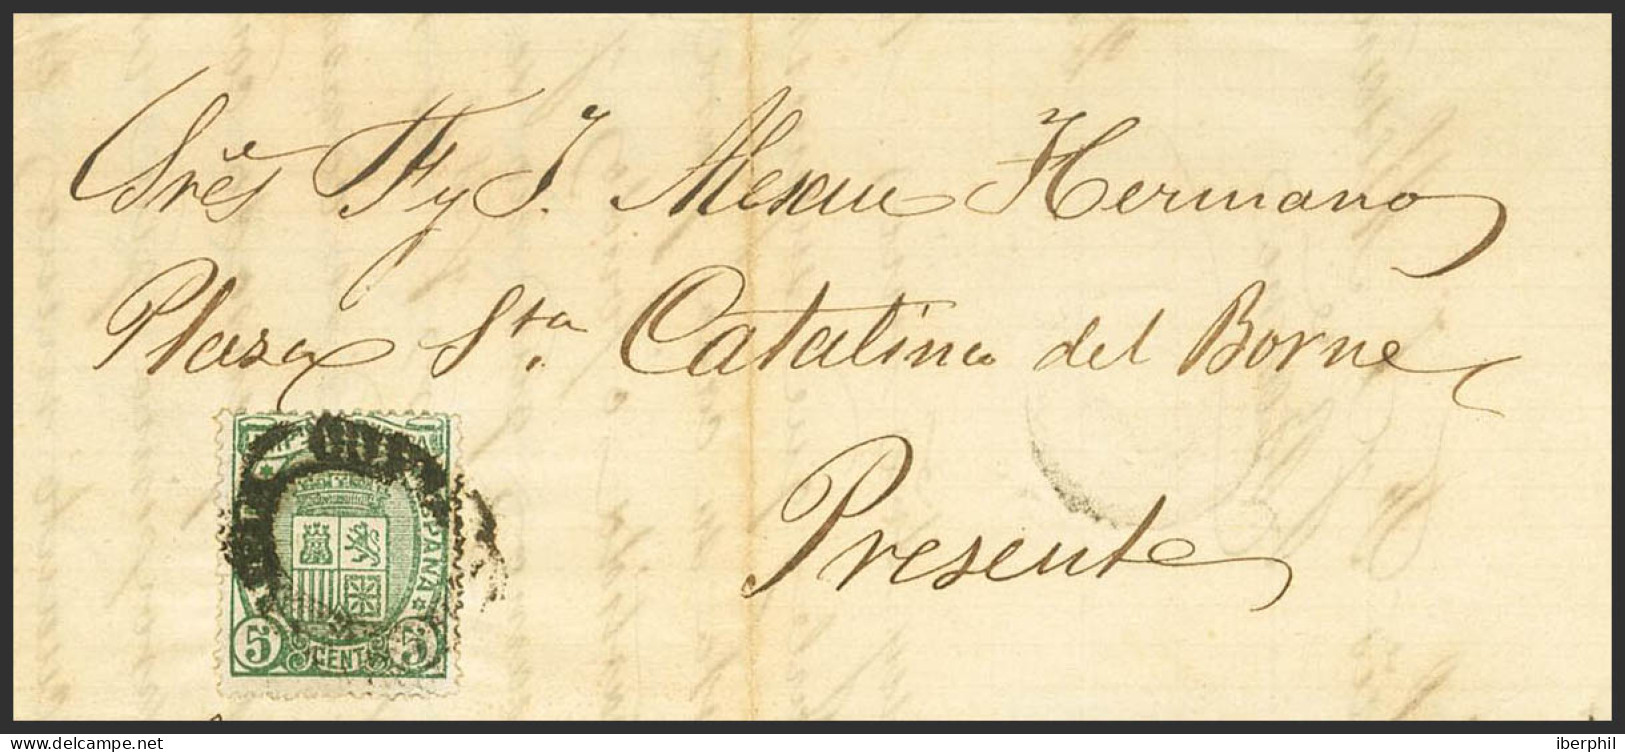 Sres F y J. Alexiu Hermano
Plaza Sta. Catalina del Borne
Presente
ESPAÑA
5 CENT 5
www.delcampe.net
iberphil